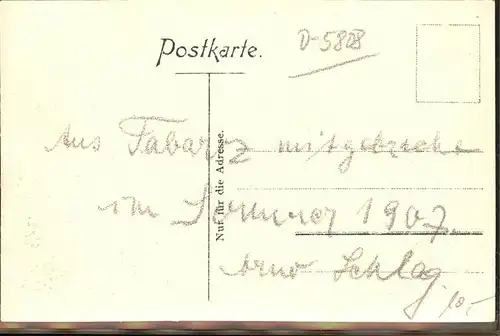 Postkarte.
D-5808
Nur für die Adresse.
Aus Tabarz mitgebracht
im Sommer 1907
Arno Schlag
10,-